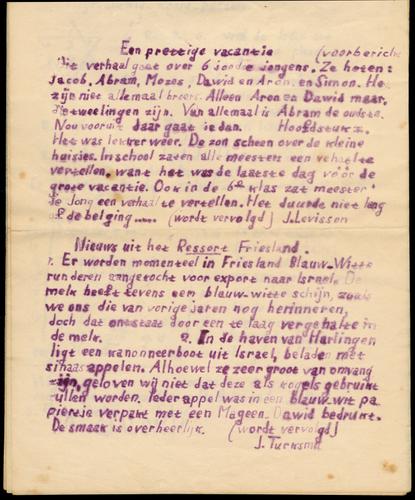 Een prettige vacantie (voorbericht
Dit verhaal gaat over 6 joodse jongens. Ze heten:
Jacob, Abram, Mozes, Dawid en Aron en Simon. Het
zijn niet allemaal broers. Alleen Aron en Dawid maar,
die tweelingen zijn. Van allemaal is Abram de oudste.
Nou vooruit daar gaat ie dan. Hoofdstuk 1.
Het was lekker weer. De zon scheen over de kleine
huisjes. In school zaten alle meesters een verhaltje
vertellen, want het was de laatste dag vóór de
grote vacantie. Ook in de 6de klas zat meester
de Jong een verhaal te vertellen. Het duurde niet lang
of de belging..... (wordt vervolgd) J. Levisson
Nieuws uit het Ressort Friesland.
1. Er worden momenteel in Friesland Blauw-Witte
runderen aangetocht voor export naar Israel. De
melk heeft tevens een blauw-witte schijn, zoals
we ons die van vorige jaren nog herinneren,
doch dat ontstaat door een te laag vergehalte in
de melk. 2. In de haven van Harlingen
ligt een kanonneerboot uit Israel, beladen met
sinaasappelen. Alhoewel ze zeer groot van omvang
zijn, geloven wij niet dat deze als kogels gebruikt
zullen worden. Ieder appel was in een blauw-wit pa
piertje verpakt met een Mageen-Dawid bedrukt.
De smaak is overheerlijk. (wordt vervolgd)
J. Turksma